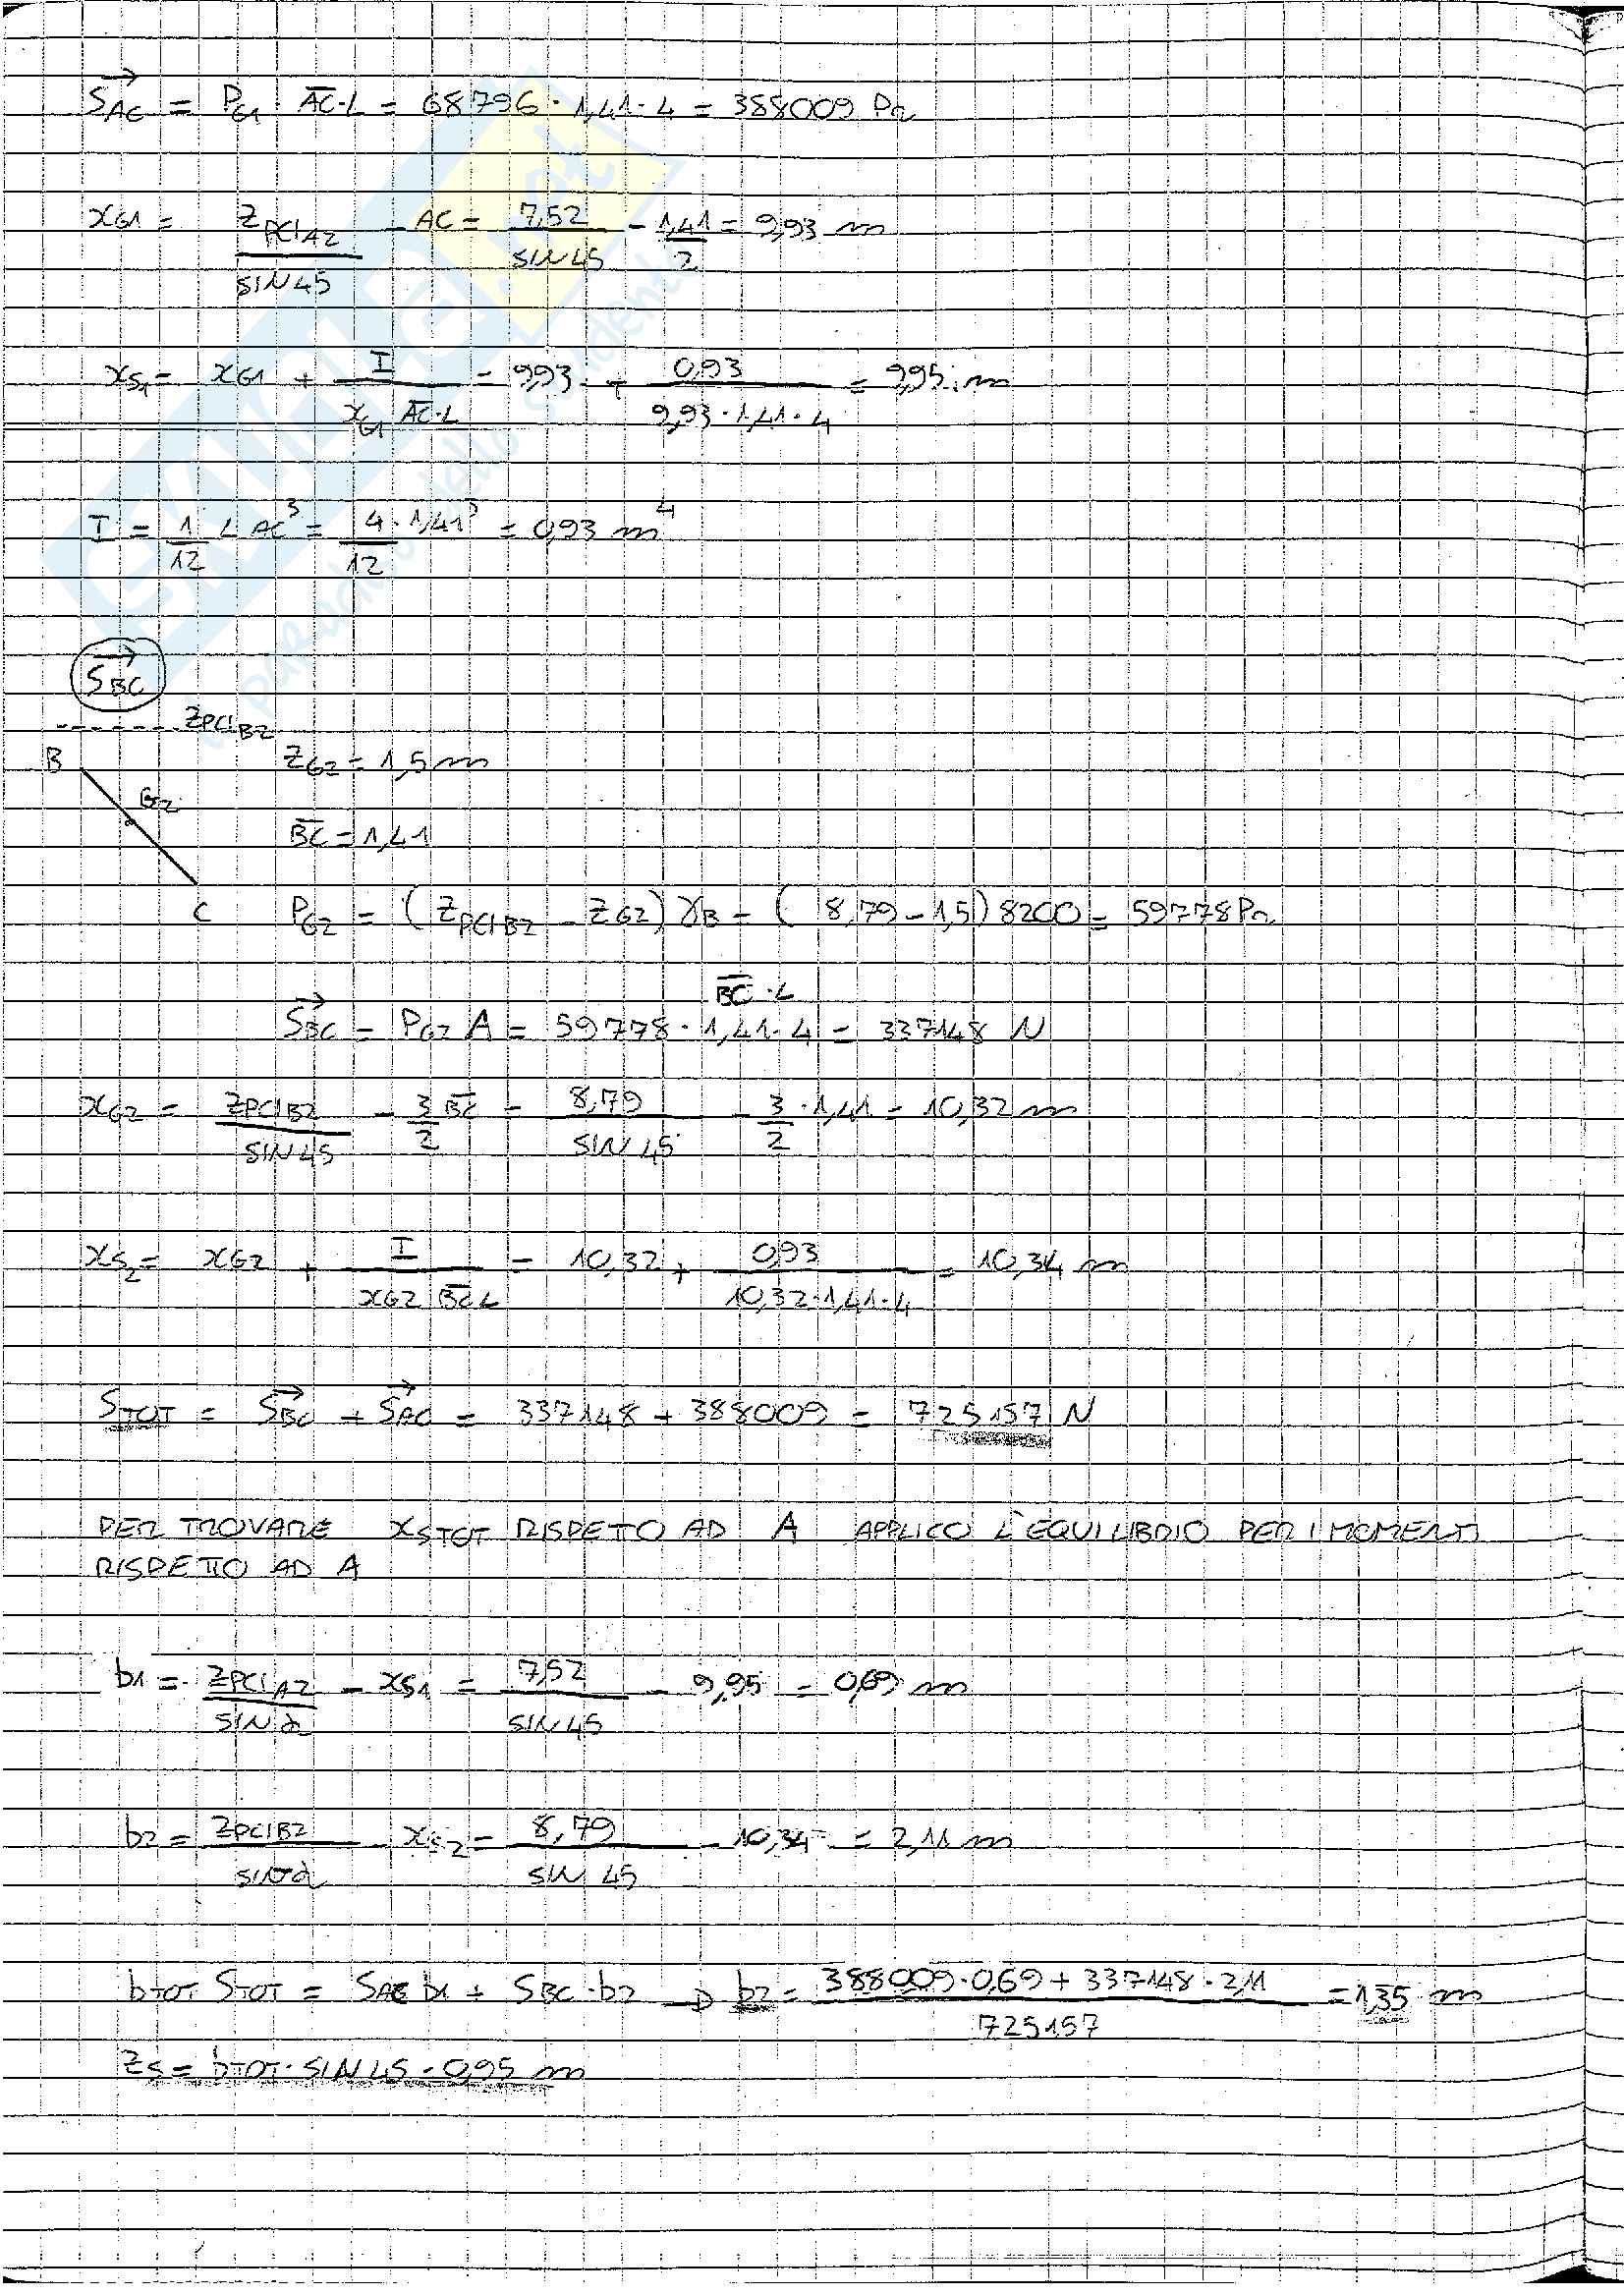 S_AC = P_G1 · AC·L = 68796 · 1,41 · 4 = 388009 Pa
x_G1 = Z_PCIA2 / SIN 45 - AC = 7,52 / SIN 45 - 1,41 / 2 = 9,93 m
x_S1 = x_G1 + I / x_G1 AC·L = 9,93 + 0,93 / 9,93 · 1,41 · 4 = 9,95 m
I = 1/12 L AC³ = 4 · 1,41³ / 12 = 0,93 m⁴
S_BC
Z_PCIB2
B Z_G2 = 1,5 m
G2
BC = 1,41
C P_G2 = (Z_PCIB2 - Z_G2) γ_B = (8,79 - 1,5) 8200 = 59778 Pa
BC · L
S_BC = P_G2 A = 59778 · 1,41 · 4 = 337148 N
x_G2 = Z_PCIB2 / SIN 45 - 3/2 BC = 8,79 / SIN 45 - 3/2 · 1,41 = 10,32 m
x_S2 = x_G2 + I / x_G2 BC L = 10,32 + 0,93 / 10,32 · 1,41 · 4 = 10,34 m
S_TOT = S_BC + S_AC = 337148 + 388009 = 725157 N
PER TROVARE x_STOT RISPETTO AD A APPLICO L'EQUILIBRIO PER I MOMENTI
RISPETTO AD A
b1 = Z_PCIA2 / SIN α - x_S1 = 7,52 / SIN 45 - 9,95 = 0,69 m
b2 = Z_PCIB2 / SIN α - x_S2 = 8,79 / SIN 45 - 10,34 = 2,11 m
b_TOT S_TOT = S_AC b1 + S_BC · b2 → b2 = 388009 · 0,69 + 337148 · 2,11 / 725157 = 1,35 m
Z_S = b_TOT · SIN 45 = 0,95 m